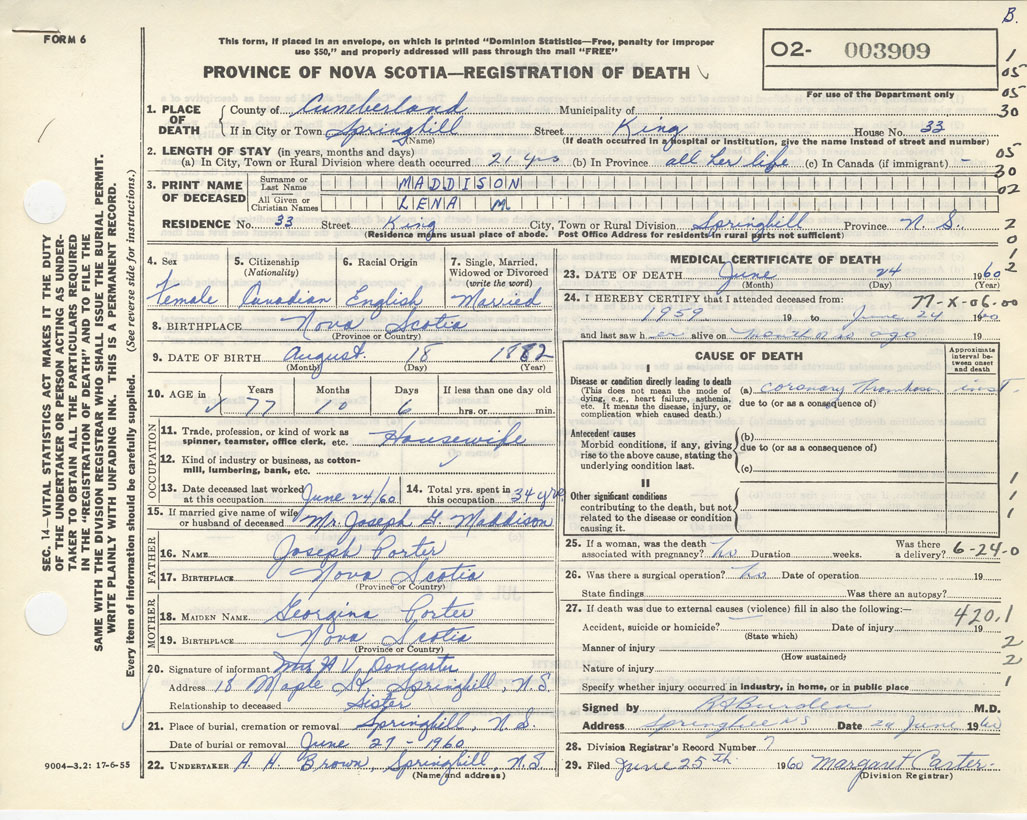 B.
FORM 6
This form, if placed in an envelope, on which is printed "Dominion Statistics—Free, penalty for improper
use $50," and properly addressed will pass through the mail "FREE"
PROVINCE OF NOVA SCOTIA—REGISTRATION OF DEATH
O2- 003909
For use of the Department only
1
05
05
30
05
30
02
2
0
1
2
1. PLACE OF DEATH
County of Cumberland Municipality of
If in City or Town Springhill Street King House No. 33
(Name) (If death occurred in a hospital or institution, give the name instead of street and number)
2. LENGTH OF STAY (in years, months and days)
(a) In City, Town or Rural Division where death occurred 21 yrs (b) In Province all her life (c) In Canada (if immigrant) -
3. PRINT NAME OF DECEASED
Surname or Last Name MADDISON
All Given or Christian Names LENA M
RESIDENCE No. 33 Street King City, Town or Rural Division Springhill Province N.S.
(Residence means usual place of abode. Post Office Address for residents in rural parts not sufficient)
4. Sex
Female
5. Citizenship (Nationality)
Canadian
6. Racial Origin
English
7. Single, Married, Widowed or Divorced (write the word)
Married
8. BIRTHPLACE Nova Scotia
(Province or Country)
9. DATE OF BIRTH August 18 1882
(Month) (Day) (Year)
10. AGE in Years Months Days If less than one day old
77 10 6 hrs. or min.
OCCUPATION
11. Trade, profession, or kind of work as
spinner, teamster, office clerk, etc. Housewife
12. Kind of industry or business, as cotton-
mill, lumbering, bank, etc.
13. Date deceased last worked
at this occupation June 24/60
14. Total yrs. spent in
this occupation 34 yrs
15. If married give name of wife
or husband of deceased Mr. Joseph G. Maddison
FATHER
16. NAME Joseph Porter
17. BIRTHPLACE Nova Scotia
(Province or Country)
MOTHER
18. MAIDEN NAME Georgina Porter
19. BIRTHPLACE Nova Scotia
(Province or Country)
20. Signature of informant Mrs H V Doncaster
Address 18 Maple St, Springhill, N.S.
Relationship to deceased Sister
21. Place of burial, cremation or removal Springhill, N.S.
Date of burial or removal June 27 - 1960
22. UNDERTAKER A. H. Brown, Springhill, N.S.
(Name and address)
MEDICAL CERTIFICATE OF DEATH
23. DATE OF DEATH June 24 1960
(Month) (Day) (Year)
77-X-06-00
24. I HEREBY CERTIFY that I attended deceased from:
1959 19 to June 24 1960
and last saw h er alive on months ago 19
CAUSE OF DEATH
Approximate interval between onset and death
I
Disease or condition directly leading to death
(This does not mean the mode of
dying, e.g., heart failure, asthenia,
etc. It means the disease, injury, or
complication which caused death.)
(a) coronary Thrombosis inst.
due to (or as a consequence of)
Antecedent causes
Morbid conditions, if any, giving
rise to the above cause, stating the
underlying condition last.
(b)
due to (or as a consequence of)
(c)
II
Other significant conditions
contributing to the death, but not
related to the disease or condition
causing it.
1
1
1
25. If a woman, was the death
associated with pregnancy? no Duration weeks. Was there a delivery? 6-24-0
26. Was there a surgical operation? no Date of operation 19
State findings Was there an autopsy?
27. If death was due to external causes (violence) fill in also the following:—
420.1
Accident, suicide or homicide? Date of injury 19
(State which)
Manner of injury 2
(How sustained?)
Nature of injury 2
Specify whether injury occurred in industry, in home, or in public place 1
Signed by M.D.
Address Springhill NS Date 24 June 1960
28. Division Registrar's Record Number 7
29. Filed June 25th 1960 Margaret Carter
(Division Registrar)
SEC. 14—VITAL STATISTICS ACT MAKES IT THE DUTY
OF THE UNDERTAKER OR PERSON ACTING AS UNDER-
TAKER TO OBTAIN ALL THE PARTICULARS REQUIRED
IN THE "REGISTRATION OF DEATH" AND TO FILE THE
SAME WITH THE DIVISION REGISTRAR WHO SHALL ISSUE THE BURIAL PERMIT.
WRITE PLAINLY WITH UNFADING INK. THIS IS A PERMANENT RECORD.
Every item of information should be carefully supplied. (See reverse side for instructions.)
9004-3.2: 17-6-55